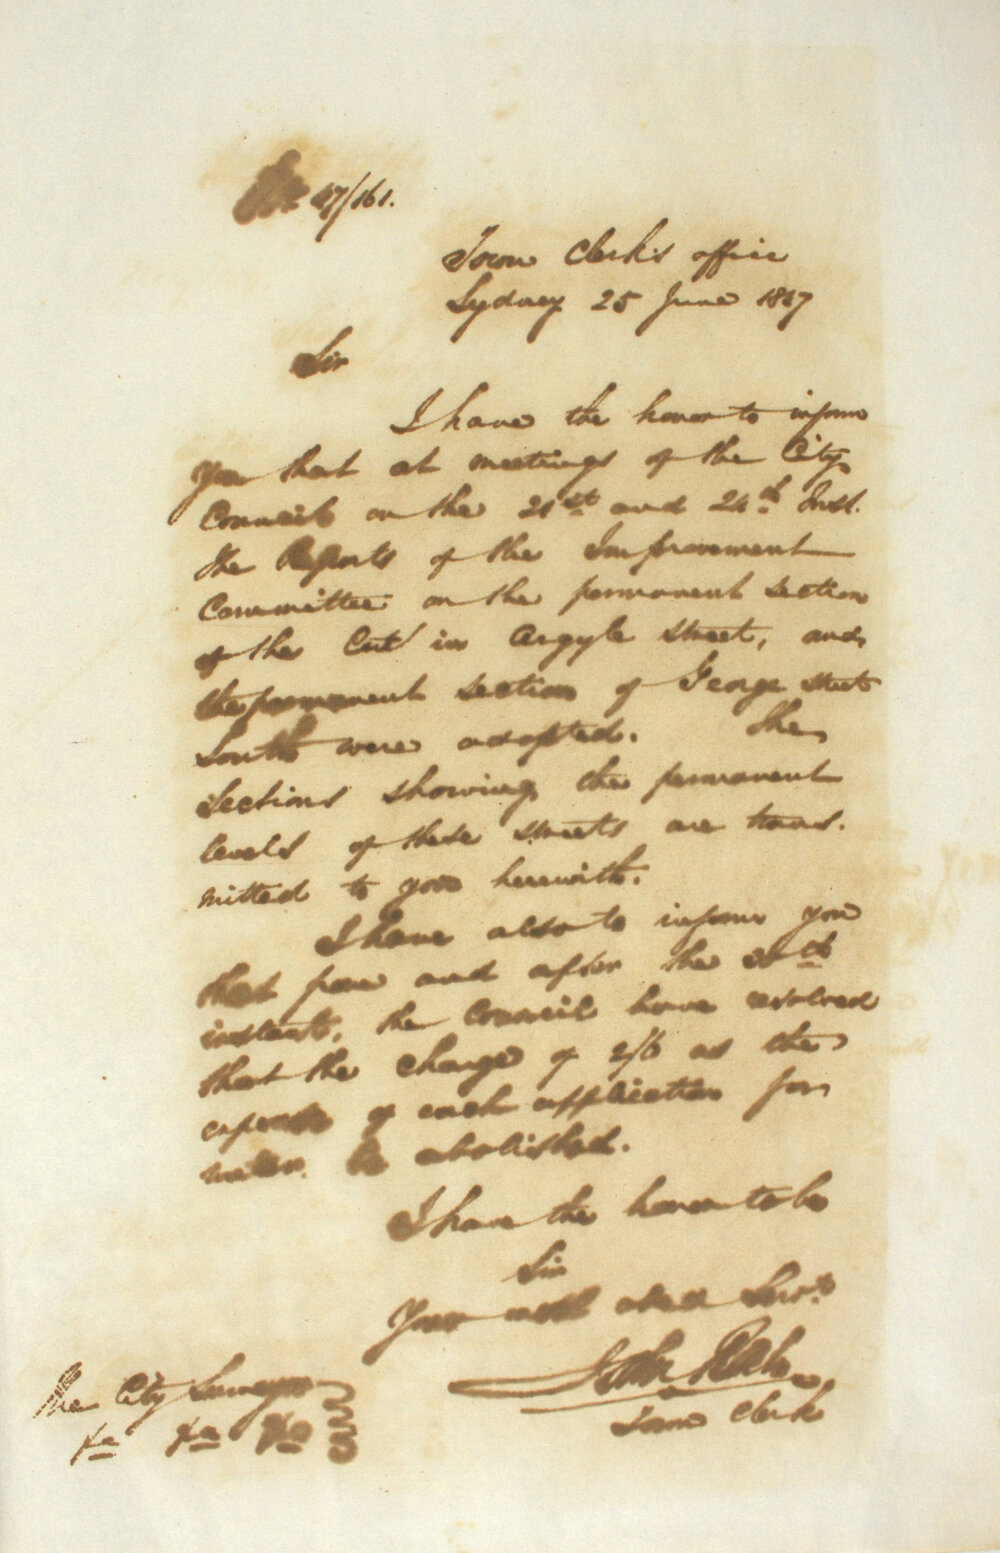 47/161.
Town Clerk's office
Sydney 25 June 1847
Sir
I have the honor to inform
you that at meetings of the City
Council on the 21st and 24th Inst.
the Reports of the Improvement
Committee on the permanent section
of the Cut in Argyle Street, and
the permanent section of George Street
South were adopted. The
Sections showing the permanent
levels of these streets are trans.
mitted to you herewith.
I have also to inform you
that from and after the 30th
instant, the Council have resolved
that the charge of 2/6 as the
expense of each application for
water be abolished.
I have the honor to be
Sir
Your most obedt Servt
Town Clerk
The City Surveyor
&c &c &c